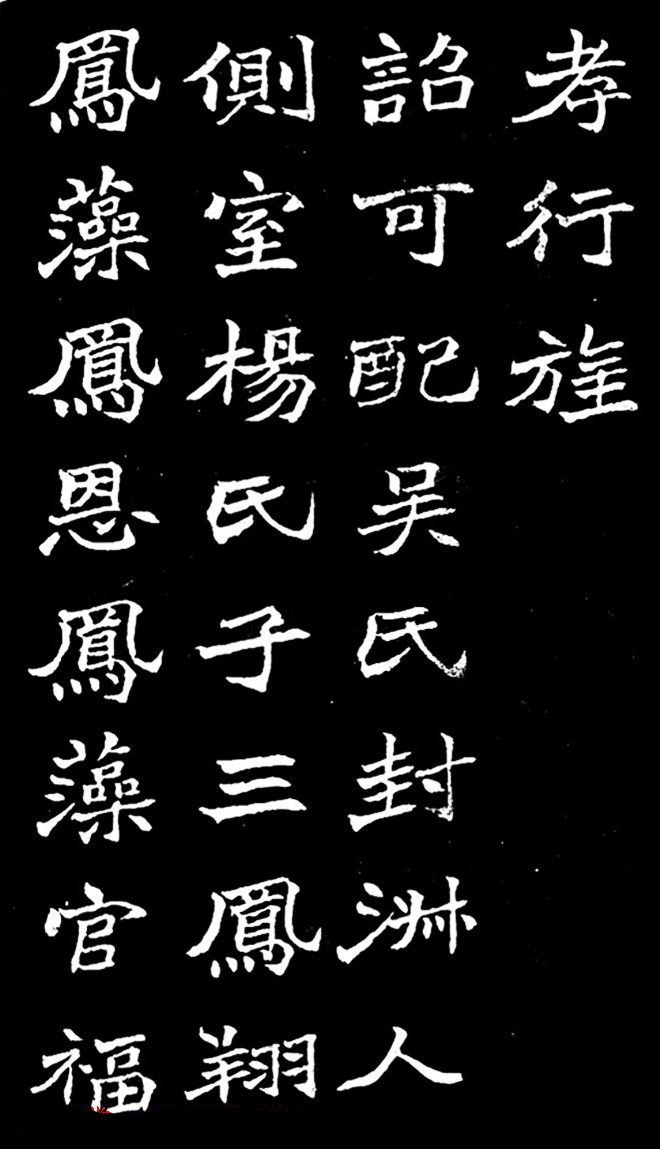 孝行旌
詔可配吴氏封淋人
側室楊氏子三鳳翔
鳳藻鳳恩鳳藻官福